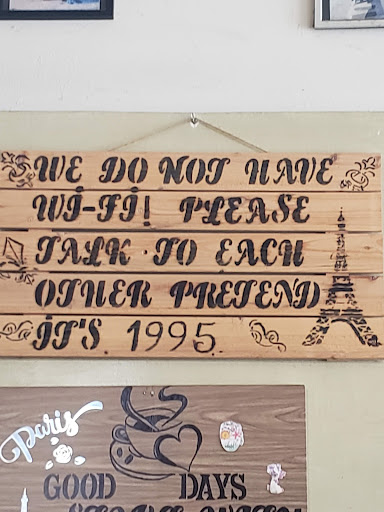 WE DO NOT HAVE
WI-FI! PLEASE
TALK TO EACH
OTHER PRETEND
IT'S 1995
Paris
GOOD DAYS